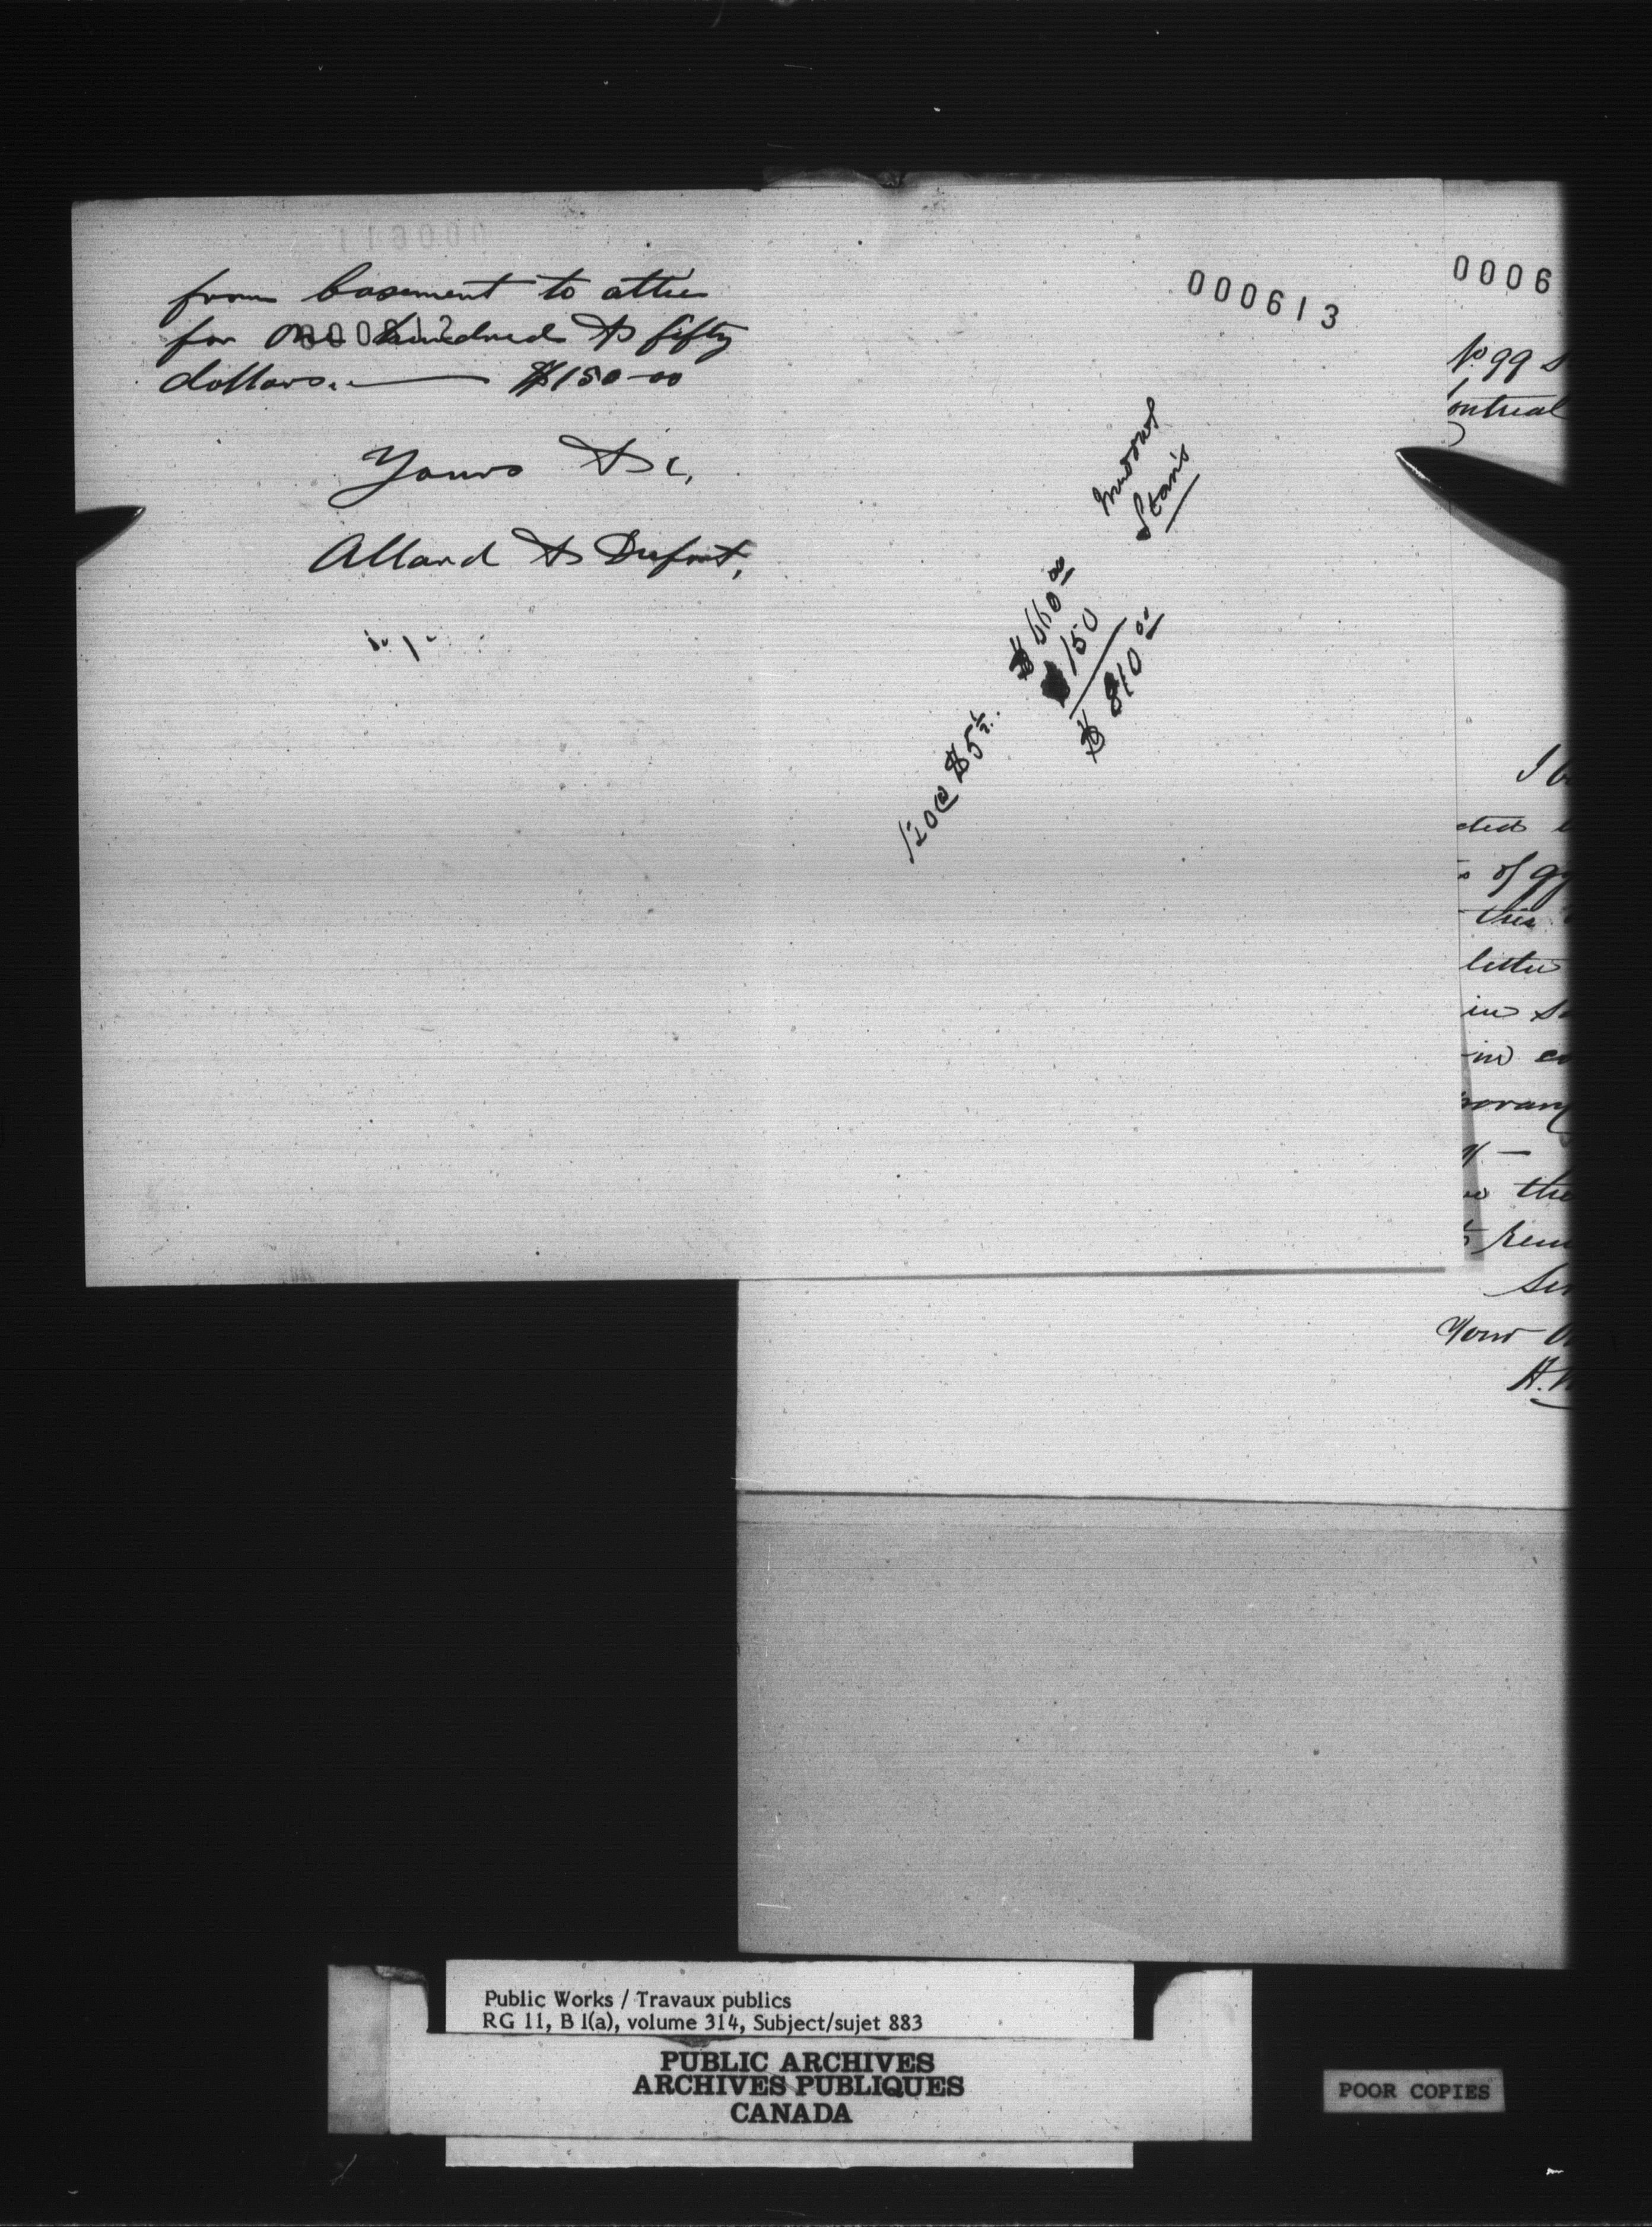 from basement to attic
for One hundred & fifty
dollars. — $150-00
Yours &c,
Allard & Dufort,
000612
000613
120 @ $5½. $660 00
$150
$810 00
Stairs
0006
No 99 S
ontreal
of
this
in
the
Your
H.
Public Works / Travaux publics
RG 11, B 1(a), volume 314, Subject/sujet 883
PUBLIC ARCHIVES
ARCHIVES PUBLIQUES
CANADA
POOR COPIES